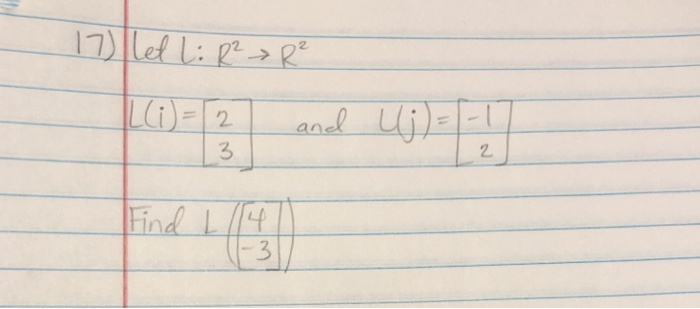 17) Let L: R² → R²
L(i) = [2 3] and L(j) = [-1 2]
Find L([4 -3])